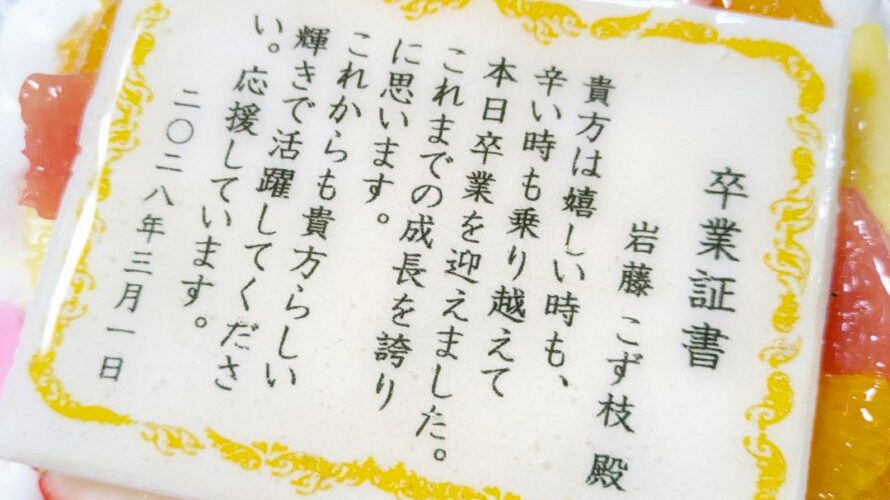 卒業証書
岩藤 こず枝 殿
貴方は嬉しい時も、
辛い時も乗り越えて
本日卒業を迎えました。
これまでの成長を誇り
に思います。
これからも貴方らしい
輝きで活躍してくださ
い。応援しています。
二〇二八年三月一日